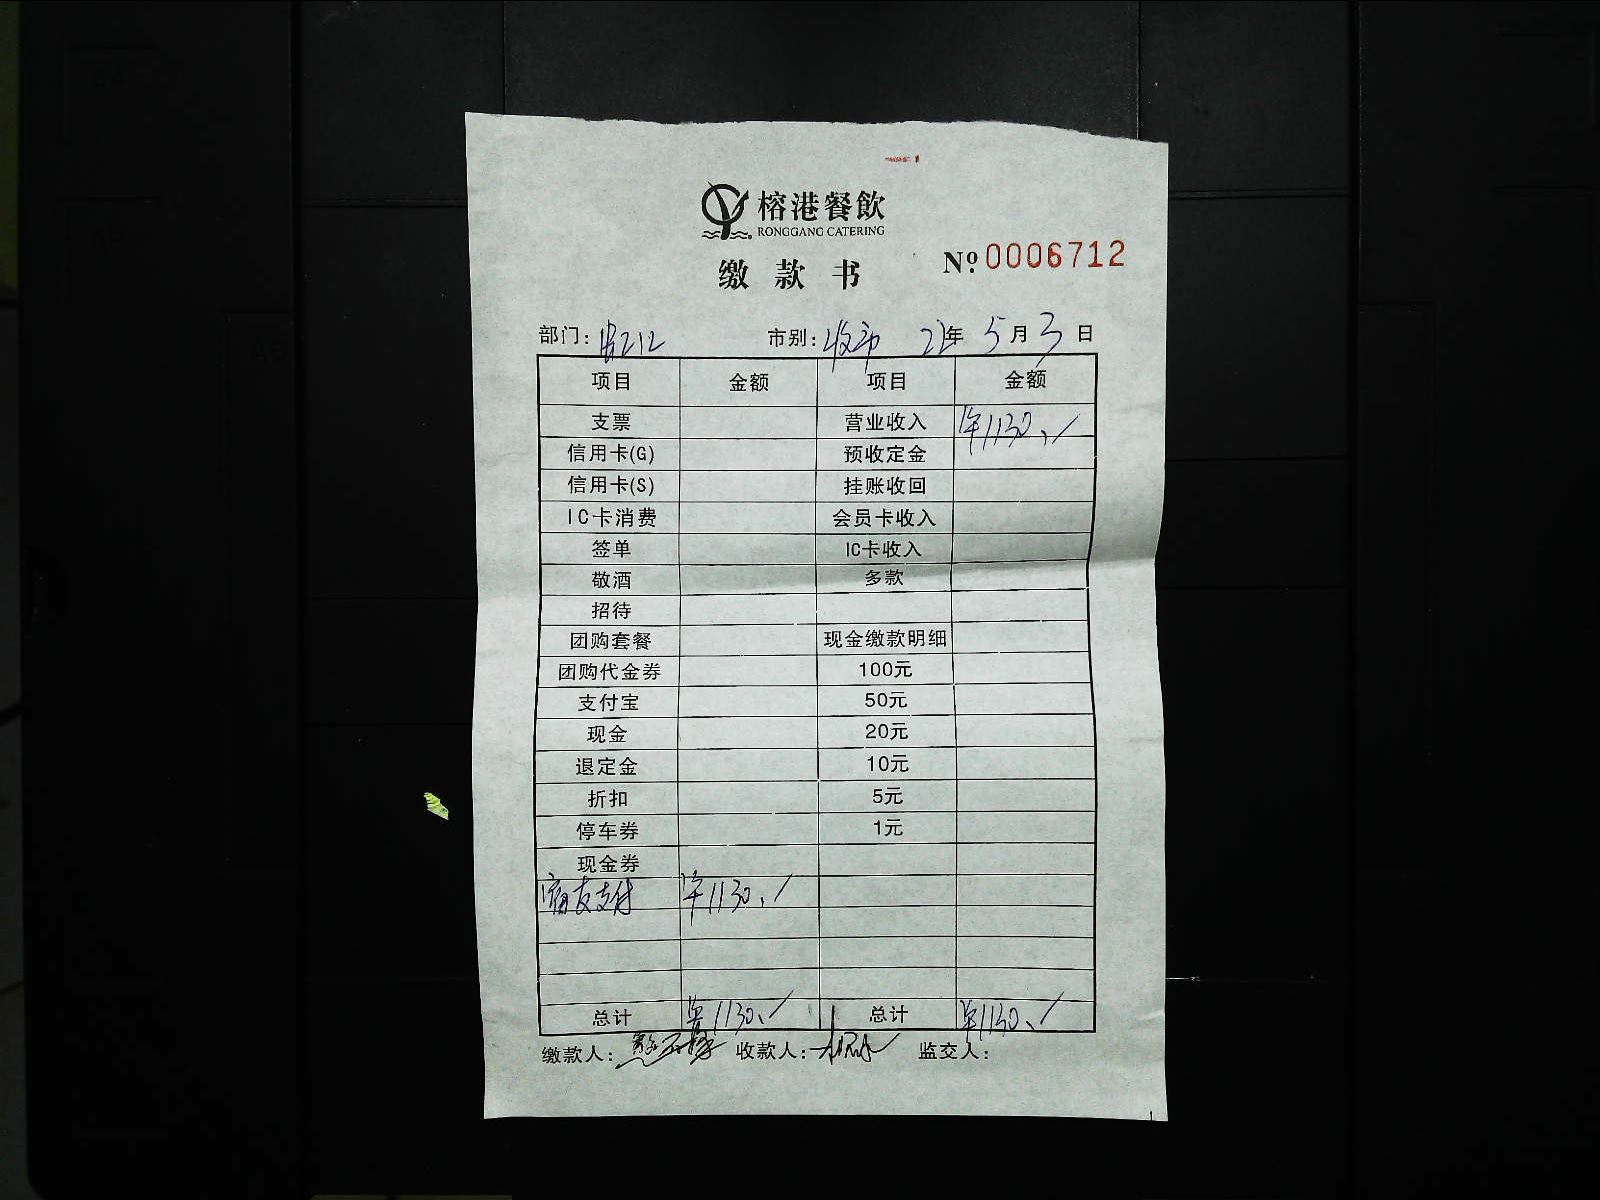 榕港餐飲
RONGGANG CATERING
缴款书
№ 0006712
部门: 市别: 收市 22年 5月3日
项目 金额 项目 金额
支票 营业收入 ¥1130、
信用卡(G) 预收定金
信用卡(S) 挂账收回
IC卡消费 会员卡收入
签单 IC卡收入
敬酒 多款
招待
团购套餐 现金缴款明细
团购代金券 100元
支付宝 50元
现金 20元
退定金 10元
折扣 5元
停车券 1元
现金券
支付 ¥1130、
总计 ¥1130、 总计 ¥1130、
缴款人: 收款人: 监交人: